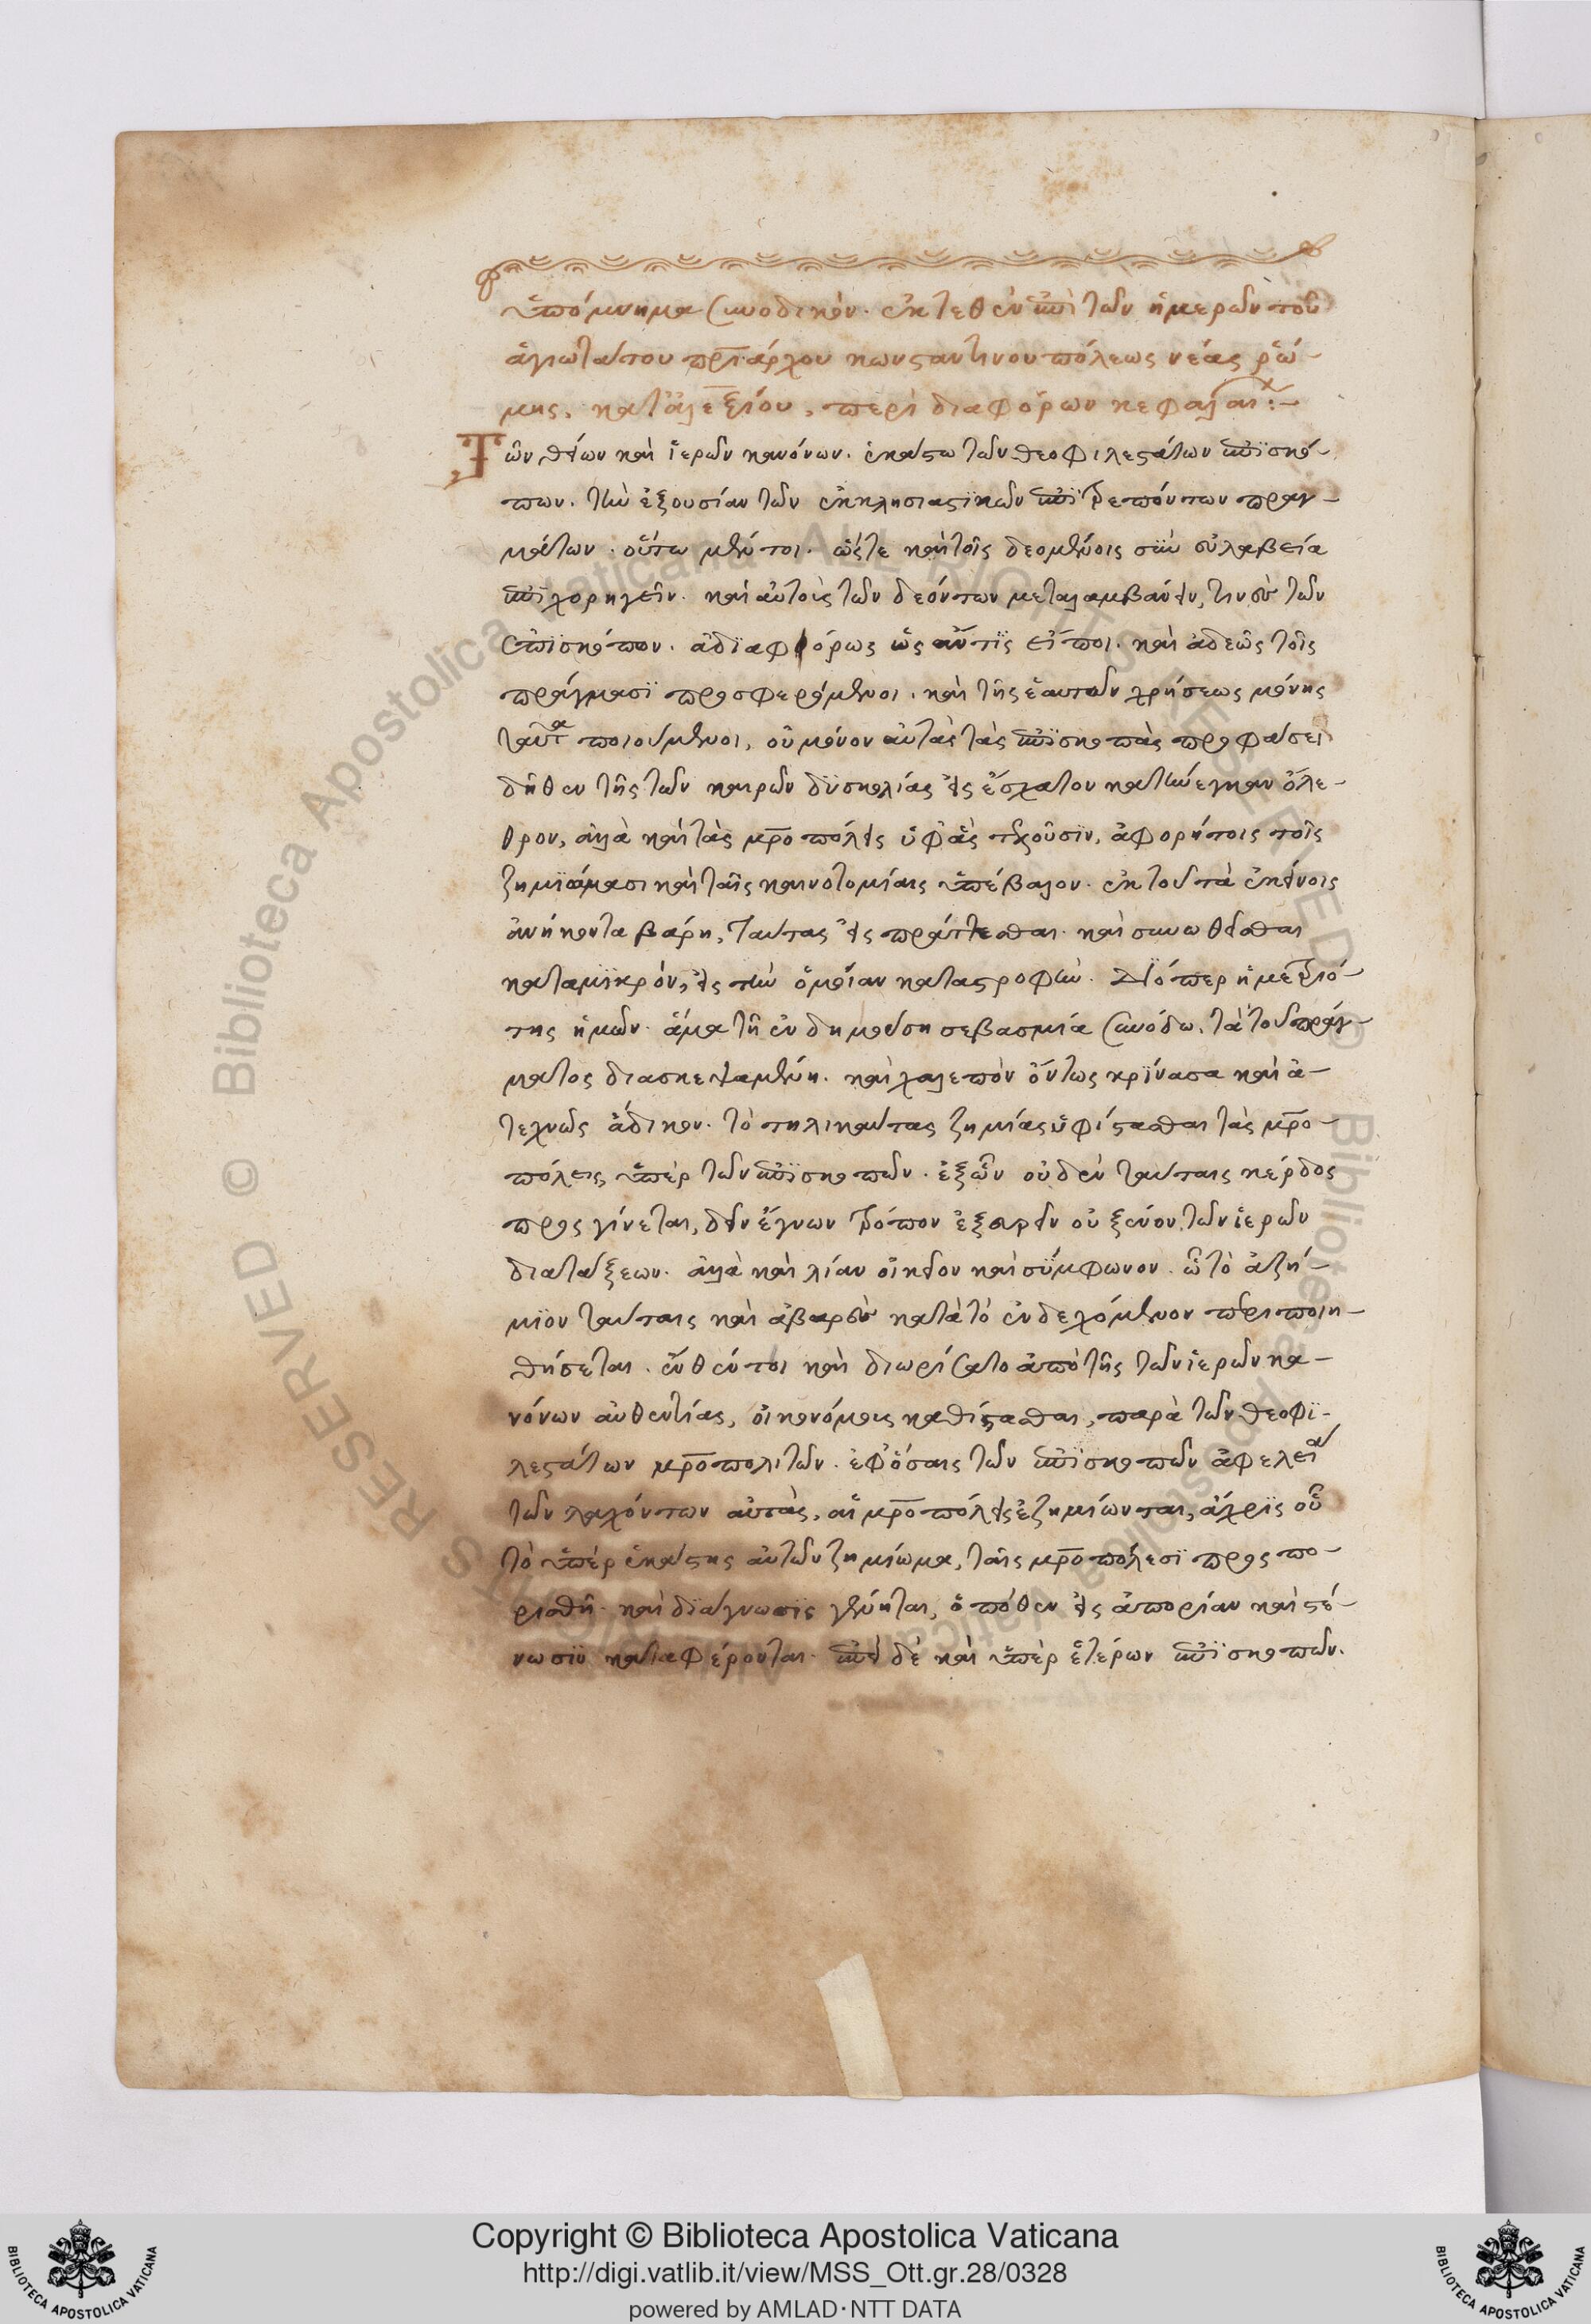 ὑπόμνημα συνοδικόν. ἐκτεθὲν ἐπὶ τῶν ἡμερῶν τοῦ
ἁγιωτάτου πριάρχου κωνσταντινουπόλεως νέας ῥώ-
μης, κυροῦ ἀλεξίου, περὶ διαφόρων κεφαλαί:-
Τῶν θείων καὶ ἱερῶν κανόνων. ἑκάστω τῶν θεοφιλεστάτων ἐπισκό-
πων. τὴν ἐξουσίαν τῶν ἐκκλησιαστικῶν ἐπιτρεπόντων πραγ-
μάτων. οὕτω μέντοι. ὥστε καὶ τοῖς δεομένοις σὺν εὐλαβεία
ἐπιχορηγεῖν. καὶ αὐτοὺς τῶν δεόντων μεταλαμβάνειν, τινὲς τῶν
ἐπισκόπων. ἀδιαφόρως ὡς ἄν τις εἴποι. καὶ ἀδεῶς τοῖς
πράγμασι προσφερόμενοι. καὶ τῆς ἑαυτῶν χρήσεως μόνης
ταῦτα ποιούμενοι, οὐ μόνον αὐτὰς τὰς ἐπισκοπὰς προφάσει
δῆθεν τῆς τῶν καιρῶν δυσκολίας εἰς ἔσχατον κατήνεγκαν ὄλε-
θρον, ἀλλὰ καὶ τὰς μροπόλεις ὑφ' ἃς τελοῦσιν, ἀφορήτοις τοῖς
ζημιώμασι καὶ ταῖς καινοτομίαις ὑπέβαλον. ἐκ τοῦ τὰ ἐκείνοις
ἀνήκοντα βάρη, ταύτας εἰσπράττεσθαι. καὶ συνωθεῖσθαι
κατὰ μικρόν, εἰς τὴν ὁμοίαν καταστροφήν. Διόπερ ἡ μετριό-
της ἡμῶν. ἅμα τῆ ἐνδημούση σεβασμία συνόδω. τὰ τοῦ πράγ-
ματος διασκεψαμένη. καὶ χαλεπὸν ὄντως κρίνασα καὶ ἀ-
τεχνῶς ἄδικον. τὸ τηλικαύτας ζημίας ὑφίστασθαι τὰς μρο-
πόλεις ὑπὲρ τῶν ἐπισκοπῶν. ἐξ ὧν οὐδὲν ταύταις κέρδος
προσγίνεται, δεῖν ἔγνων τρόπον ἐξευρεῖν οὐ ξένον τῶν ἱερῶν
διατάξεων. ἀλλὰ καὶ λίαν οἰκεῖον καὶ σύμφωνον. ᾧ τὸ ἀζή-
μιον ταύταις καὶ ἀβαρὲς κατὰ τὸ ἐνδεχόμενον περιποιη-
θήσεται. ἔνθέν τοι καὶ διωρίσατο ἀπὸ τῆς τῶν ἱερῶν κα-
νόνων αὐθεντίας, οἰκονόμους καθίστασθαι, παρὰ τῶν θεοφι-
λεστάτων μροπολιτῶν. ἐφ' ὅσαις τῶν ἐπισκοπῶν ἀφελεία
τῶν λαχόντων αὐτάς, αἱ μροπόλεις ἐζημίωνται, ἄχρις οὗ
τὸ ὑπὲρ ἑκάστης αὐτῶν ζημίωμα, ταῖς μροπόλεσι προσπο-
ρισθῆ. καὶ διάγνωσις γένηται, ὁπόθεν εἰς ἀπορίαν καὶ στέ-
νωσιν καταφέρονται. ἐπεὶ δὲ καὶ ὑπὲρ ἑτέρων ἐπισκοπῶν.
Copyright © Biblioteca Apostolica Vaticana
http://digi.vatlib.it/view/MSS_Ott.gr.28/0328
powered by AMLAD·NTT DATA